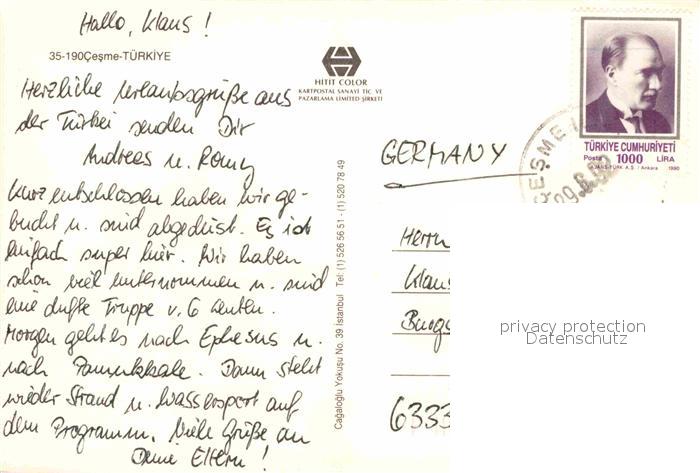 Hallo, Klaus!
35-190Çeşme-TÜRKİYE
HITIT COLOR
KARTPOSTAL SANAYİ TİC VE
PAZARLAMA LIMITED-ŞİRKETİ
Herzliche Urlaubsgrüße aus
der Türkei senden Dir
Andreas u. Romy
Kurz entschlossen haben wir ge-
bucht u. sind abgedüst. Es ist
einfach super hier. Wir haben
schon viel unternommen u. sind
eine dufte Truppe v. 6 Leuten.
Morgen geht es nach Ephesus u.
nach Pamukkale. Dann steht
wieder Strand u. Wassersport auf
dem Programm. Viele Grüße an
Deine Eltern!
Cağaloğlu Yokuşu No. 39 İstanbul Tel: (1) 526 56 51 - (1) 520 78 49
TÜRKİYE CUMHURİYETİ
Posta 1000 LİRA
AJANS-TÜRK A.Ş. / Ankara 1990
ÇEŞME
GERMANY
Herrn
Klaus
6333
privacy protection
Datenschutz